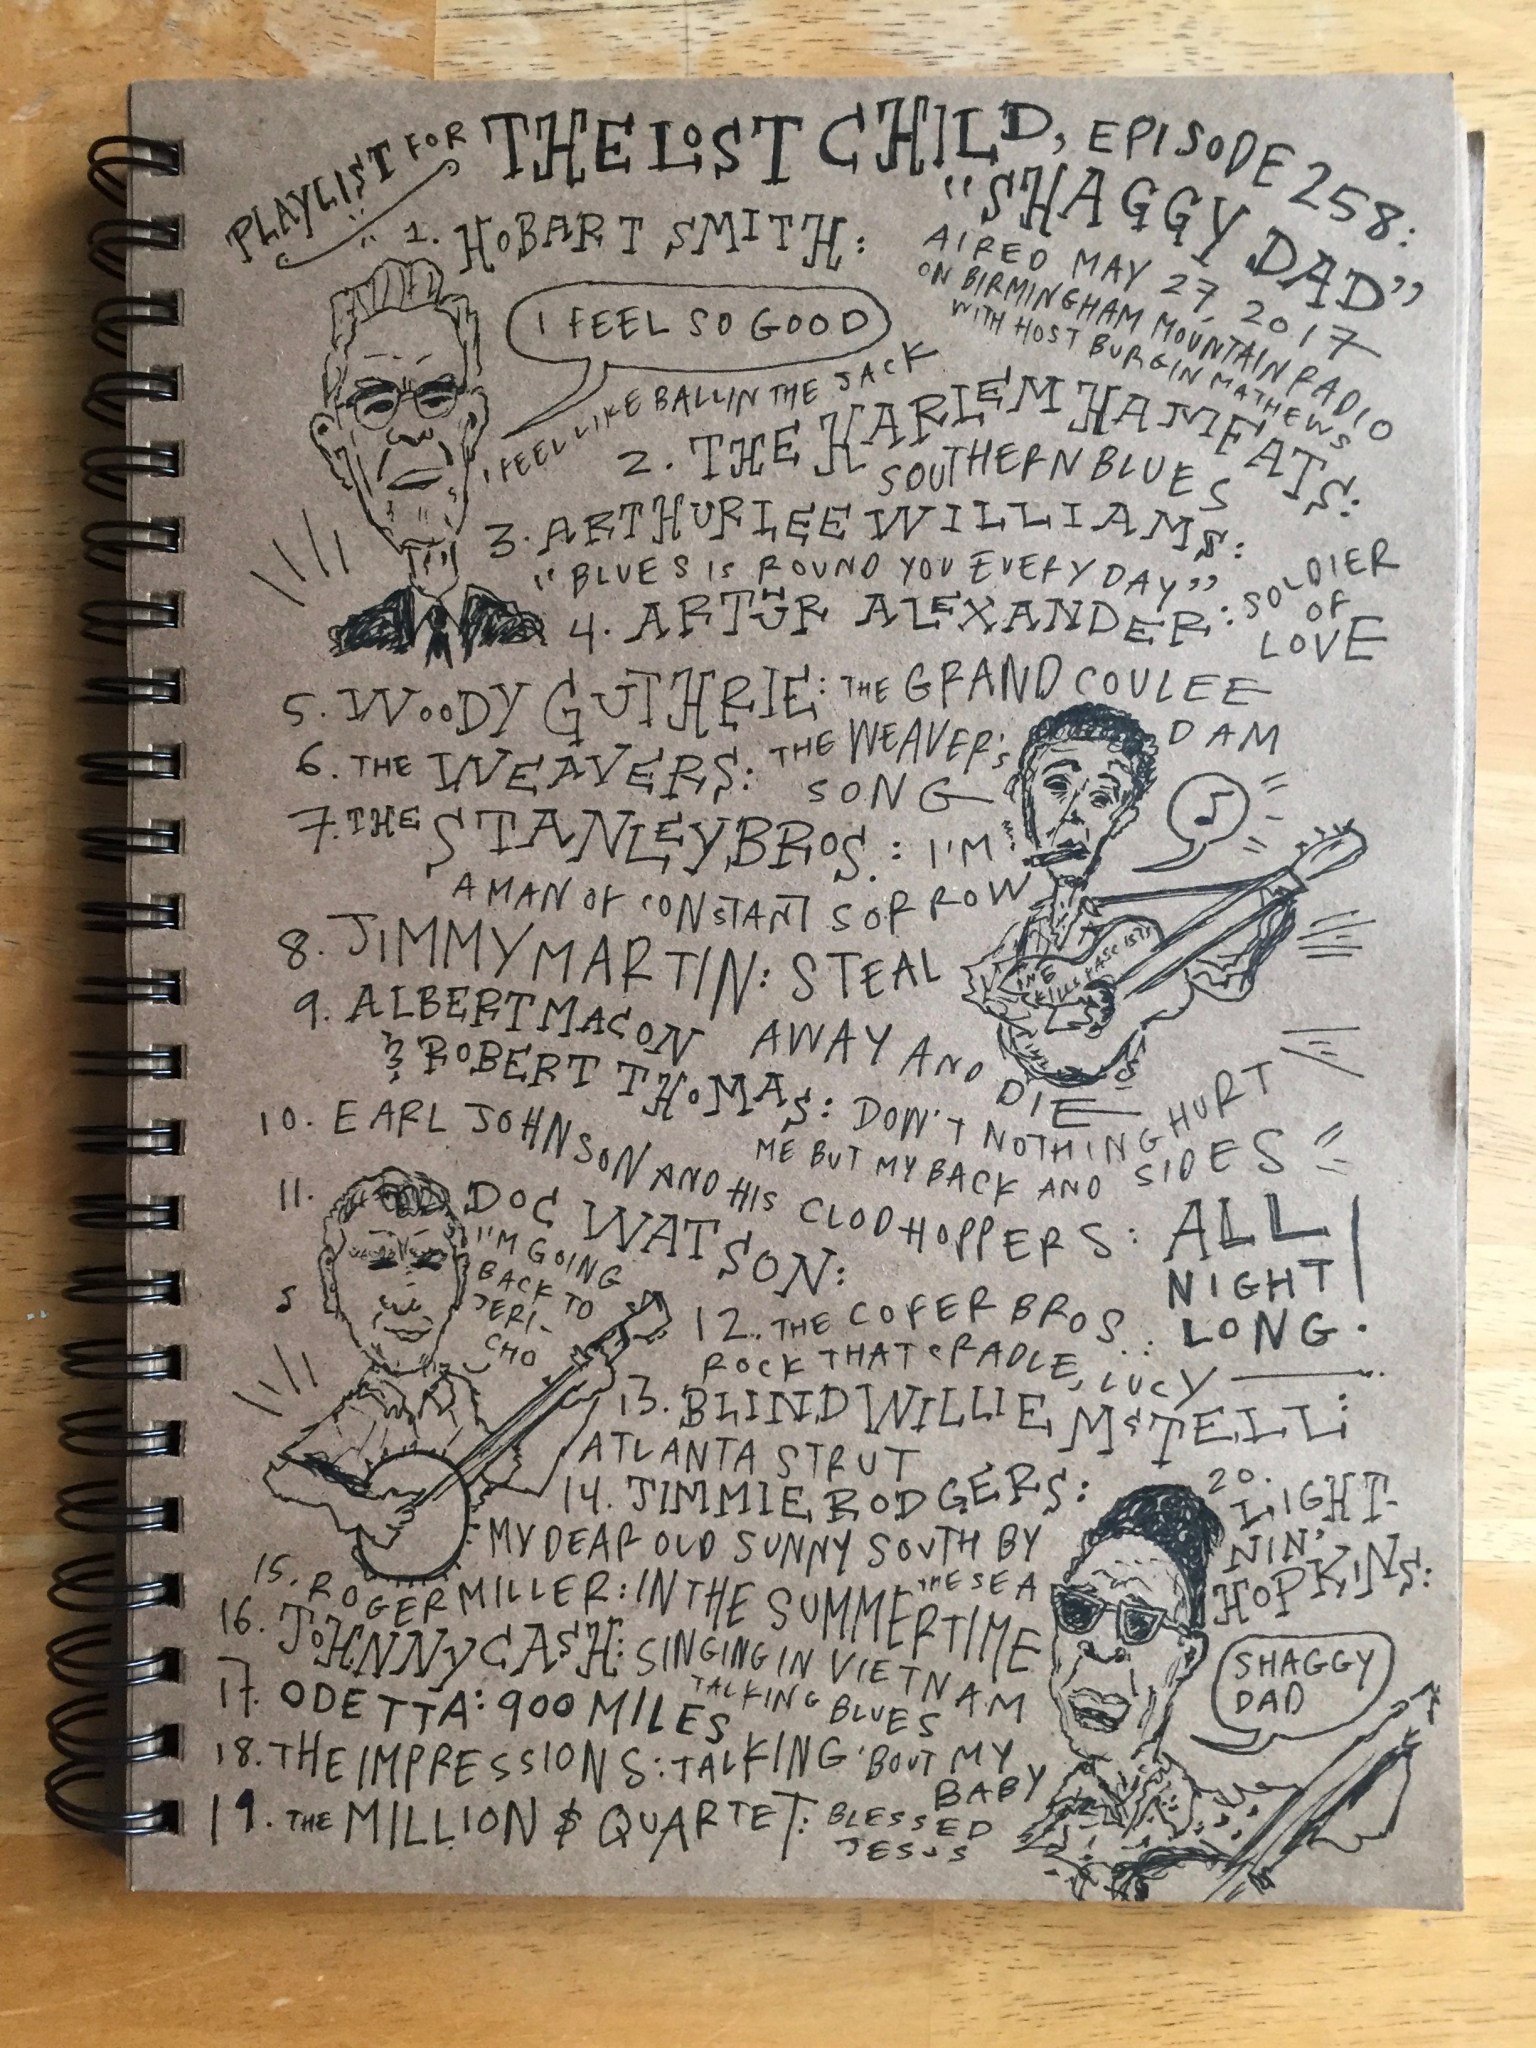 PLAYLIST FOR THE LOST CHILD, EPISODE 258:
"SHAGGY DAD"
AIRED MAY 27, 2017
ON BIRMINGHAM MOUNTAIN RADIO
WITH HOST BURGIN MATHEWS
1. HOBART SMITH:
I FEEL SO GOOD
I FEEL LIKE BALLIN THE JACK
2. THE HARLEM HAMFATS:
SOUTHERN BLUES
3. ARTHUR LEE WILLIAMS:
"BLUES IS ROUND YOU EVERY DAY"
4. ARTHUR ALEXANDER: SOLDIER
OF
LOVE
5. WOODY GUTHRIE: THE GRAND COULEE
DAM
6. THE WEAVERS: THE WEAVER'S
SONG
7. THE STANLEY BROS.: I'M
A MAN OF CONSTANT SORROW
THIS MACHINE KILLS FASCISTS
8. JIMMY MARTIN: STEAL
AWAY AND DIE
9. ALBERT MACON
& ROBERT THOMAS: DON'T NOTHING HURT
ME BUT MY BACK AND SIDES
10. EARL JOHNSON AND HIS CLODHOPPERS: ALL
NIGHT
LONG.
11. DOC WATSON:
I'M GOING
BACK TO
JERI-
CHO
12. THE COFER BROS.:
ROCK THAT CRADLE, LUCY
13. BLIND WILLIE McTELL:
ATLANTA STRUT
14. JIMMIE RODGERS:
MY DEAR OLD SUNNY SOUTH BY
THE SEA
15. ROGER MILLER: IN THE SUMMERTIME
16. JOHNNY CASH: SINGING IN VIETNAM
TALKING BLUES
17. ODETTA: 900 MILES
18. THE IMPRESSIONS: TALKING 'BOUT MY
BABY
19. THE MILLION $ QUARTET: BLESSED
JESUS
20. LIGHT-
NIN'
HOPKINS:
SHAGGY
DAD